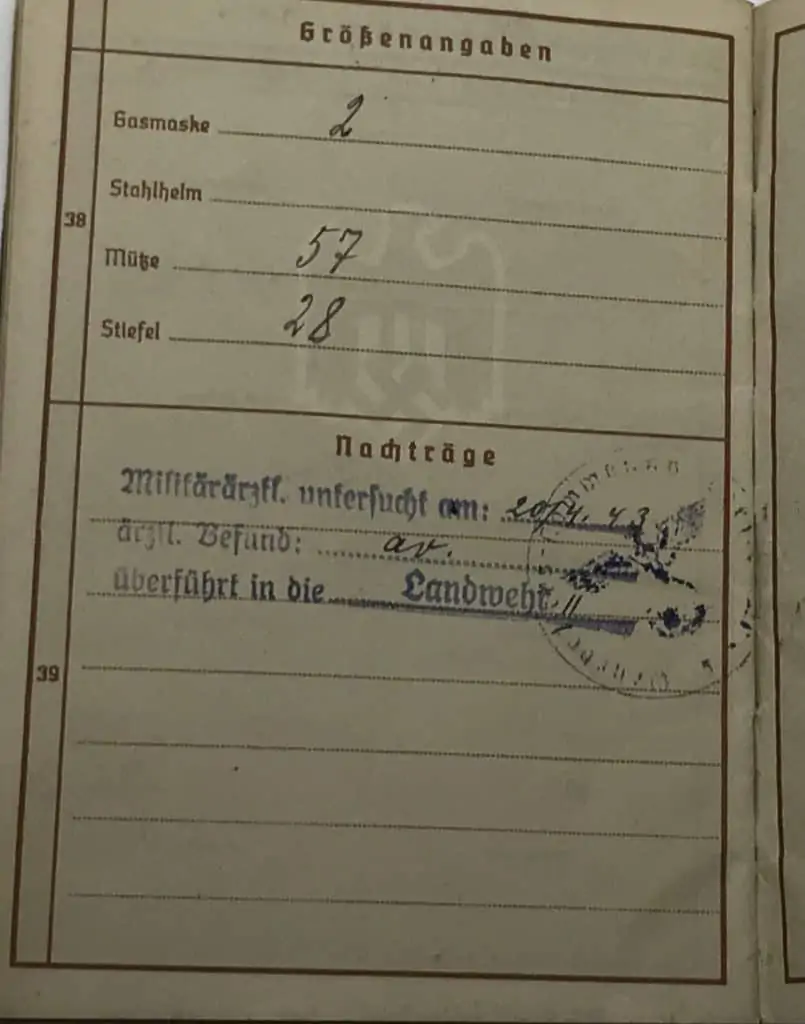 Größenangaben
Gasmaske 2
Stahlhelm
38
Mütze 57
Stiefel 28
Nachträge
Militärärztl. untersucht am: 20.4.43
ärztl. Befund: av.
überführt in die Landwehr II
39